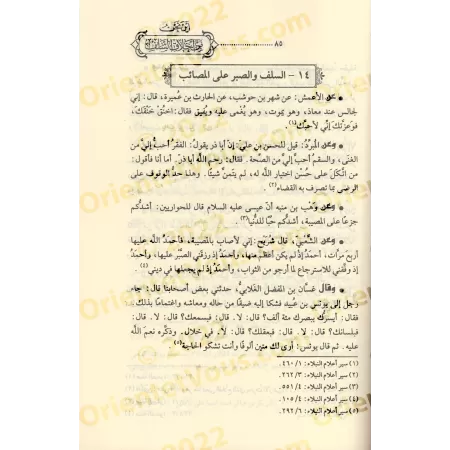 ٨٥
١٤ - السلف والصبر على المصائب
• عن الأعمش: عن شهر بن حوشب، عن الحارث بن عُميرة، قال: إني
لجالس عند معاذ، وهو يموت، وهو يُغمى عليه ويُفيق فقال: اخنُق خَنْقَكَ،
فوعزَّتك إنّي لأحبُّك(١).
• وعن المبرِّد: قيل للحسن بن علي: إنَّ أبا ذر يقول: الفقرُ أحبُّ إليَّ من
الغنى، والسقمُ أحبُّ إليَّ من الصِّحة. فقال: رحم الله أبا ذر. أما أنا فأقول:
من اتَّكلَ على حُسْن اختيار الله له، لم يتمنَّ شيئًا. وهذا حدُّ الوقوف على
الرضى بما تصرف به القضاء(٢).
• وعن وهب بن منبه أنَّ عيسى عليه السلام قال للحواريين: أشدُّكم
جزعًا على المصيبة، أشدُّكم حُبًّا للدُّنيا(٣).
• وعن الشَّعْبيّ، قال شُريح: إني لأصاب بالمصيبة، فأحمَدُ الله عليها
أربعَ مرَّات، أحمَدُ إذْ لم يكن أعظمَ منها، وأحمَدُ إذ رزقني الصبرَ عليها، وأحمَدُ
إذ وفَّقني للاسترجاع لما أرجو من الثواب، وأحمَدُ إذ لم يجعلها في ديني(٤).
• وقال غسَّان بن المفضل الغَلابيُّ، حدثني بعض أصحابنا قال: جاء
رجل إلى يونس بن عُبيد فشكا إليه ضيقًا من حاله ومعاشه واغتمامًا بذلك.
فقال: أيسرُّك ببصرك مئة ألف؟ قال: لا. قال: فبسمعك؟ قال: لا. قال:
فبلسانك؟ قال: لا. قال: فبعقلك؟ قال: لا. في خلال. وذكَّره نعمَ الله
عليه. ثم قال يونس: أرى لك مئين ألوفًا وأنت تشكو الحاجة(٥)
(١) سير أعلام النبلاء: ٤٦٠/١.
(٢) سير أعلام النبلاء: ٢٦٢/٣.
(٣) سير أعلام النبلاء: ٥٥١/٤.
(٤) سير أعلام النبلاء: ١٠٥/٤.
(٥) سير أعلام النبلاء: ٢٩٢/٦.